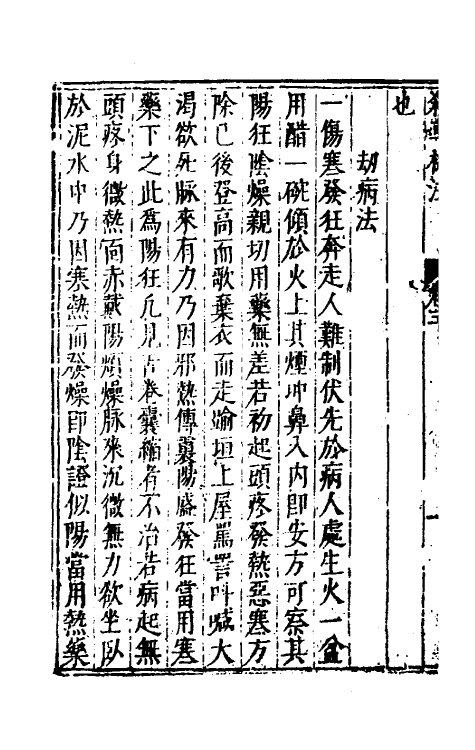 也
劫病法
一傷寒發狂奔走人難制伏先於病人處生火一盆
用醋一碗傾於火上其煙冲鼻入內即安方可察其
陽狂陰燥親切用藥無差若初起頭疼發熱惡寒方
除已後登高而歌棄衣而走踰垣上屋罵詈叫喊大
渴欲死脉來有力乃因邪熱傳裏陽盛發狂當用寒
藥下之此爲陽狂凡見舌卷囊縮者不治若病起無
頭疼身微熱面赤戴陽煩燥脉來沉微無力欲坐臥
於泥水中乃因寒熱而發燥即陰證似陽當用熱藥